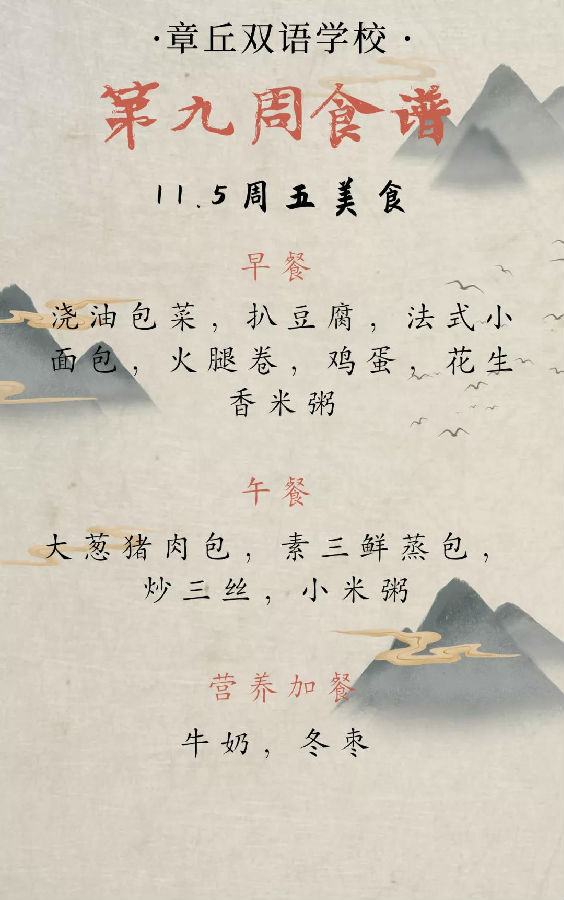 ·章丘双语学校·
第九周食谱
11.5周五美食
早餐
浇油包菜，扒豆腐，法式小
面包，火腿卷，鸡蛋，花生
香米粥
午餐
大葱猪肉包，素三鲜蒸包，
炒三丝，小米粥
营养加餐
牛奶，冬枣